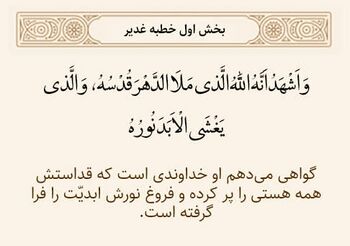 بخش اول خطبه غدیر
وَاَشْهَدُ اَنَّهُ اللهُ الَّذی مَلَاَ الدَّهْرَ قُدْسُهُ، وَالَّذی
یَغْشَی الْاَبَدَ نُورُهُ
گواهی می‌دهم او خداوندی است که قداستش
همه هستی را پر کرده و فروغ نورش ابدیّت را فرا
گرفته است.